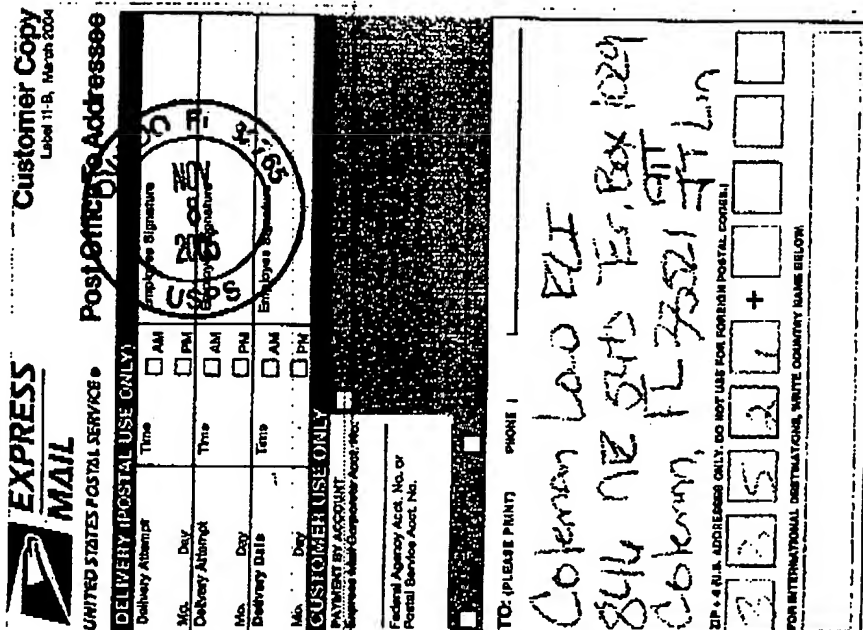 EXPRESS
MAIL
UNITED STATES POSTAL SERVICE ®
Customer Copy
Label 11-B, March 2004
Post Office To Addressee
DELIVERY (POSTAL USE ONLY)
Delivery Attempt
Time
AM
PM
Employee Signature
Mo. Day
Delivery Attempt
Time
AM
PM
Employee Signature
Mo. Day
Delivery Date
Time
AM
PM
Employee Signature
Mo. Day
FL
NOV
USPS
CUSTOMER USE ONLY
PAYMENT BY ACCOUNT
Express Mail Corporate Acct. No.
Federal Agency Acct. No. or
Postal Service Acct. No.
TO: (PLEASE PRINT) PHONE (
Coleman Low FCI
846 NE 54th Ter, Box 1029
Coleman, FL 33521
ZIP + 4 (U.S. ADDRESSES ONLY. DO NOT USE FOR FOREIGN POSTAL CODES.)
3 3 5 2 1 +
FOR INTERNATIONAL DESTINATIONS, WRITE COUNTRY NAME BELOW.